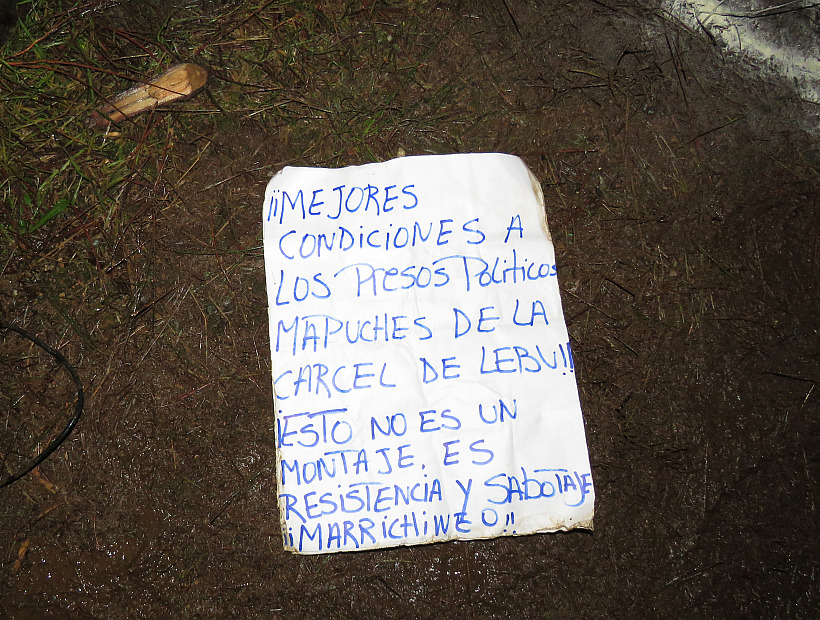 ¡¡MEJORES
CONDICIONES A
LOS PRESOS POLITICOS
MAPUCHES DE LA
CARCEL DE LEBU!!
¡ESTO NO ES UN
MONTAJE. ES
RESISTENCIA Y SABOTAJE
¡¡MARRICHIWEO!!